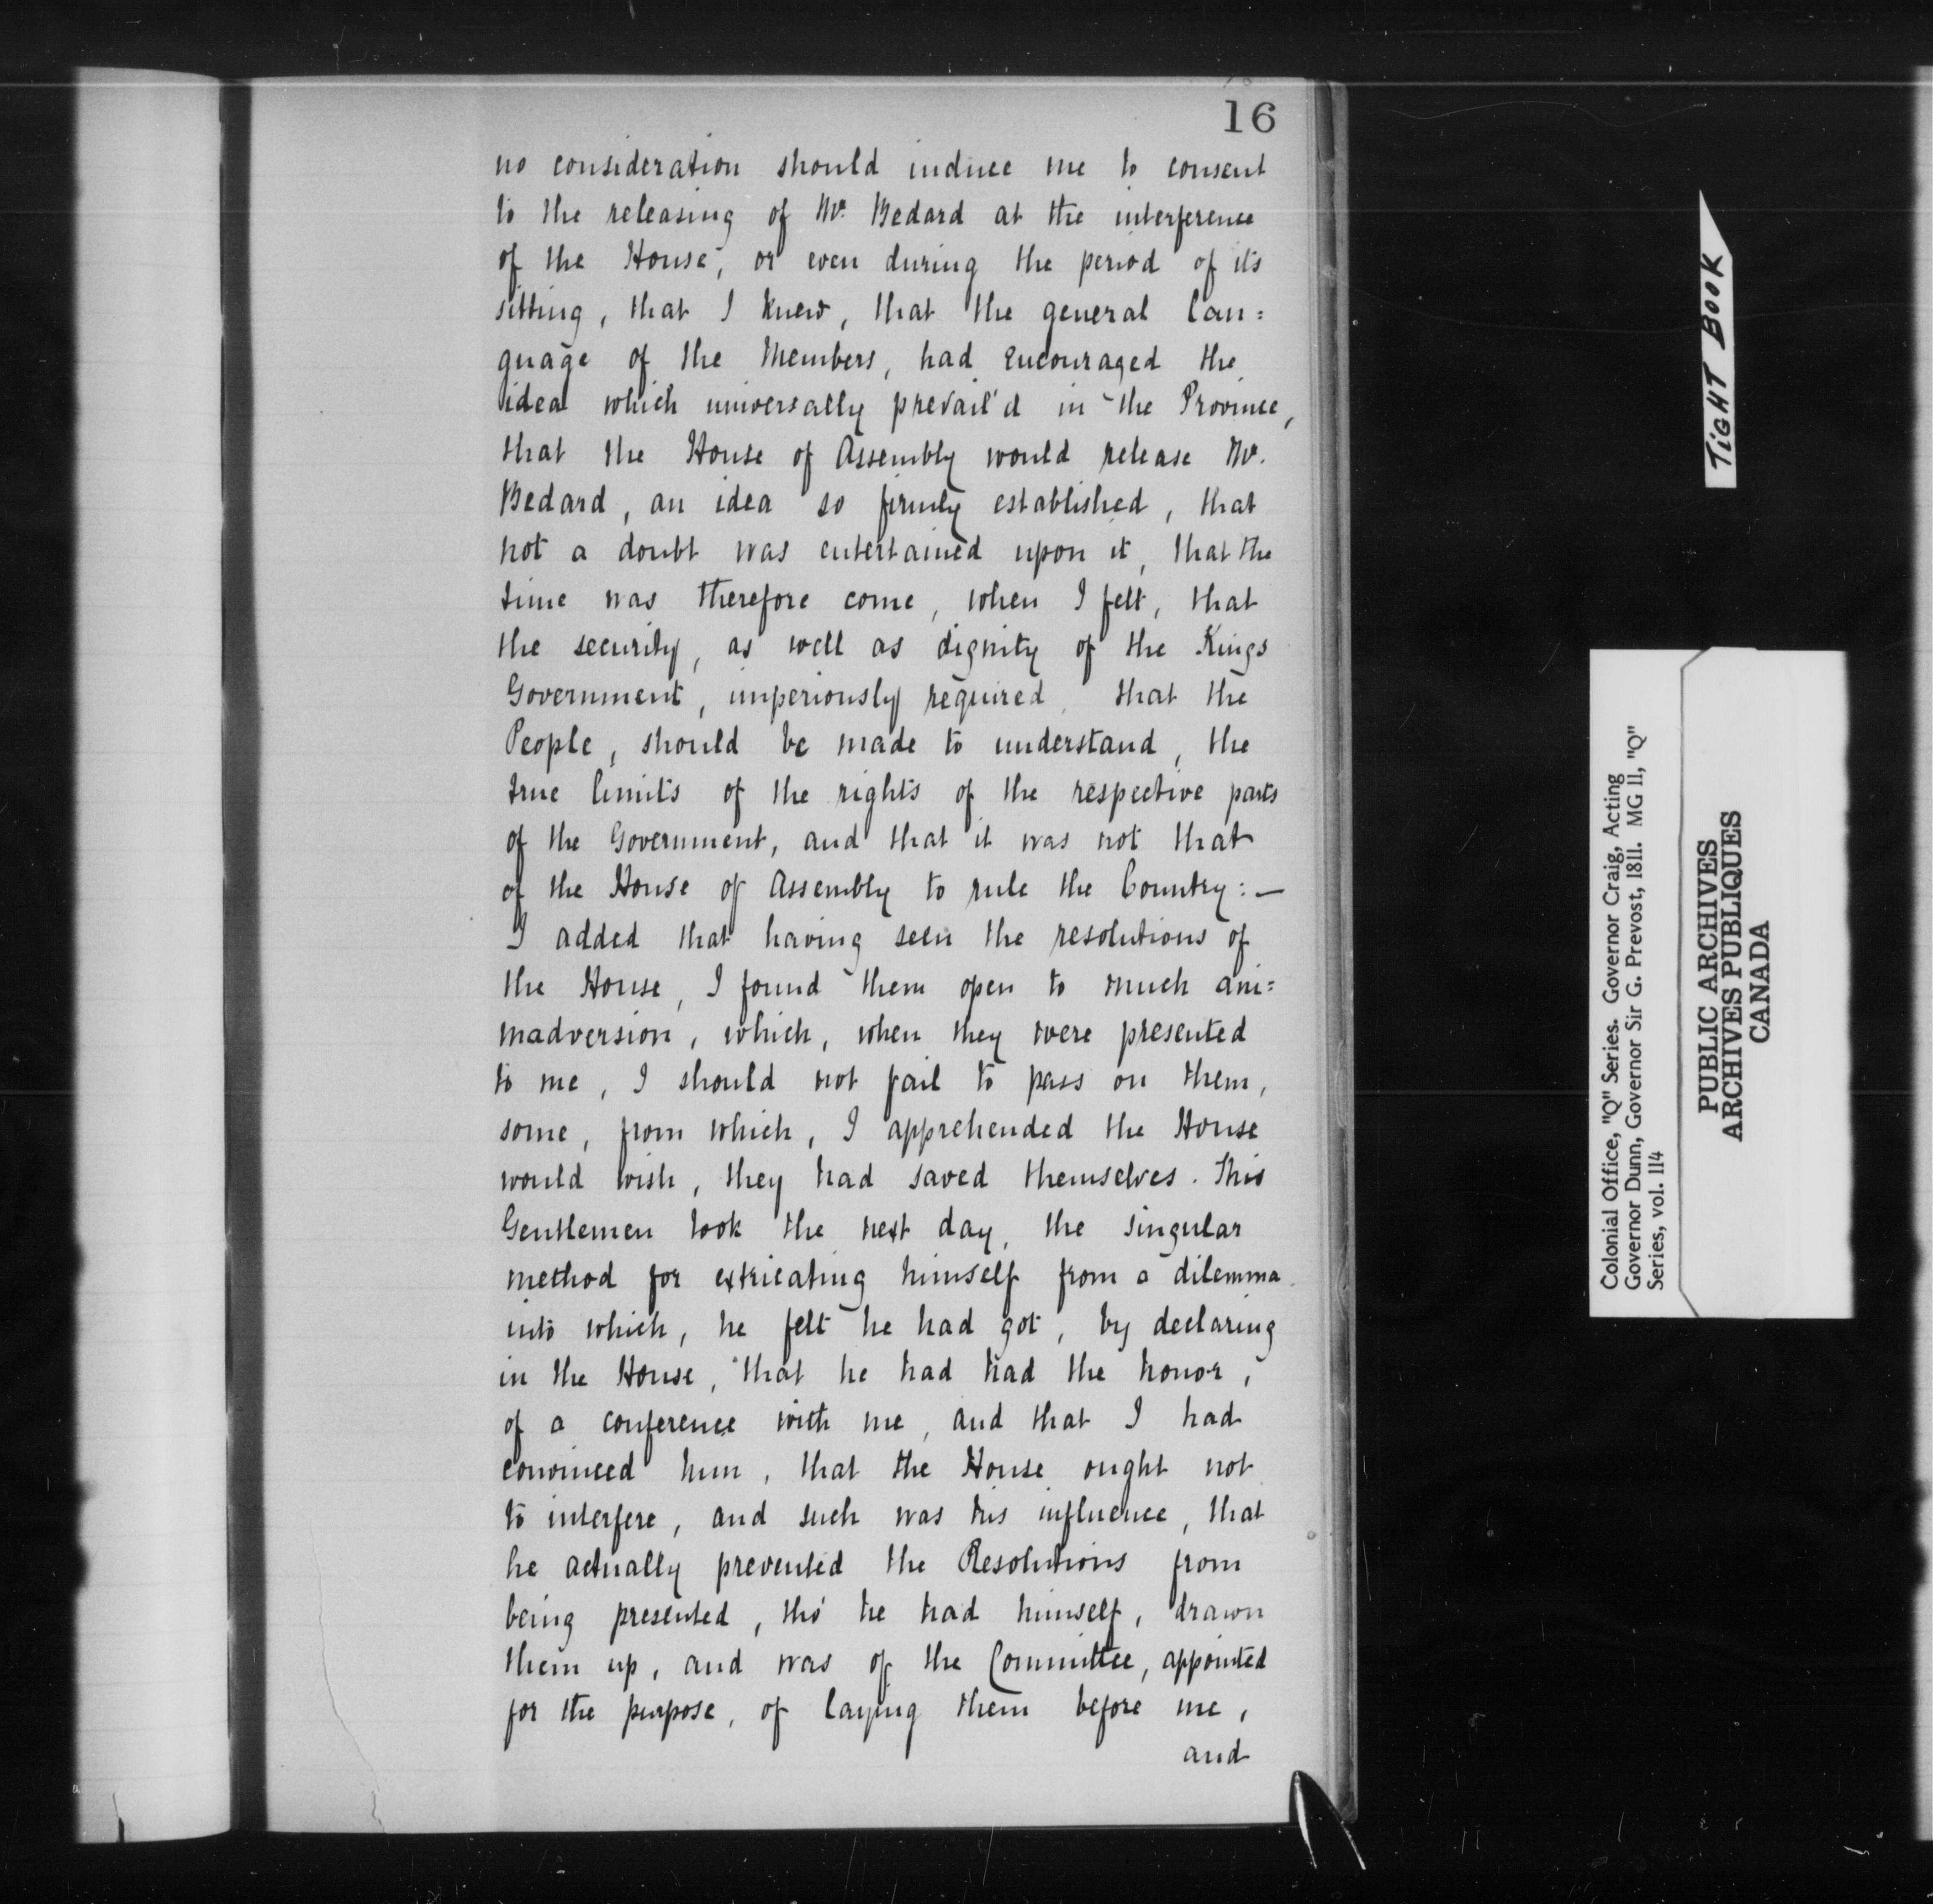 16
no consideration should induce me to consent
to the releasing of Mr. Bedard at the interference
of the House, or even during the period of its
sitting, that I knew, that the general lan=
guage of the Members, had encouraged the
idea which universally prevail'd in the Province,
that the House of Assembly would release Mr.
Bedard, an idea so firmly established, that
not a doubt was entertained upon it, that the
time was therefore come, when I felt, that
the security, as well as dignity of the Kings
Government, imperiously required, that the
People, should be made to understand, the
true limits of the rights of the respective parts
of the Government, and that it was not that
of the House of Assembly to rule the Country:—
I added that having seen the resolutions of
the House, I found them open to much ani=
madversion, which, when they were presented
to me, I should not fail to pass on them,
some, from which, I apprehended the House
would wish, they had saved themselves. This
Gentlemen took the next day, the singular
method for extricating himself from a dilemma
into which, he felt he had got, by declaring
in the House, that he had had the honor,
of a conference with me, and that I had
convinced him, that the House ought not
to interfere, and such was his influence, that
he actually prevented the Resolutions from
being presented, tho' he had himself, drawn
them up, and was of the Committee, appointed
for the purpose, of laying them before me,
and
TIGHT BOOK
Colonial Office, "Q" Series. Governor Craig, Acting
Governor Dunn, Governor Sir G. Prevost, 1811. MG 11, "Q"
Series, vol. 114
PUBLIC ARCHIVES
ARCHIVES PUBLIQUES
CANADA